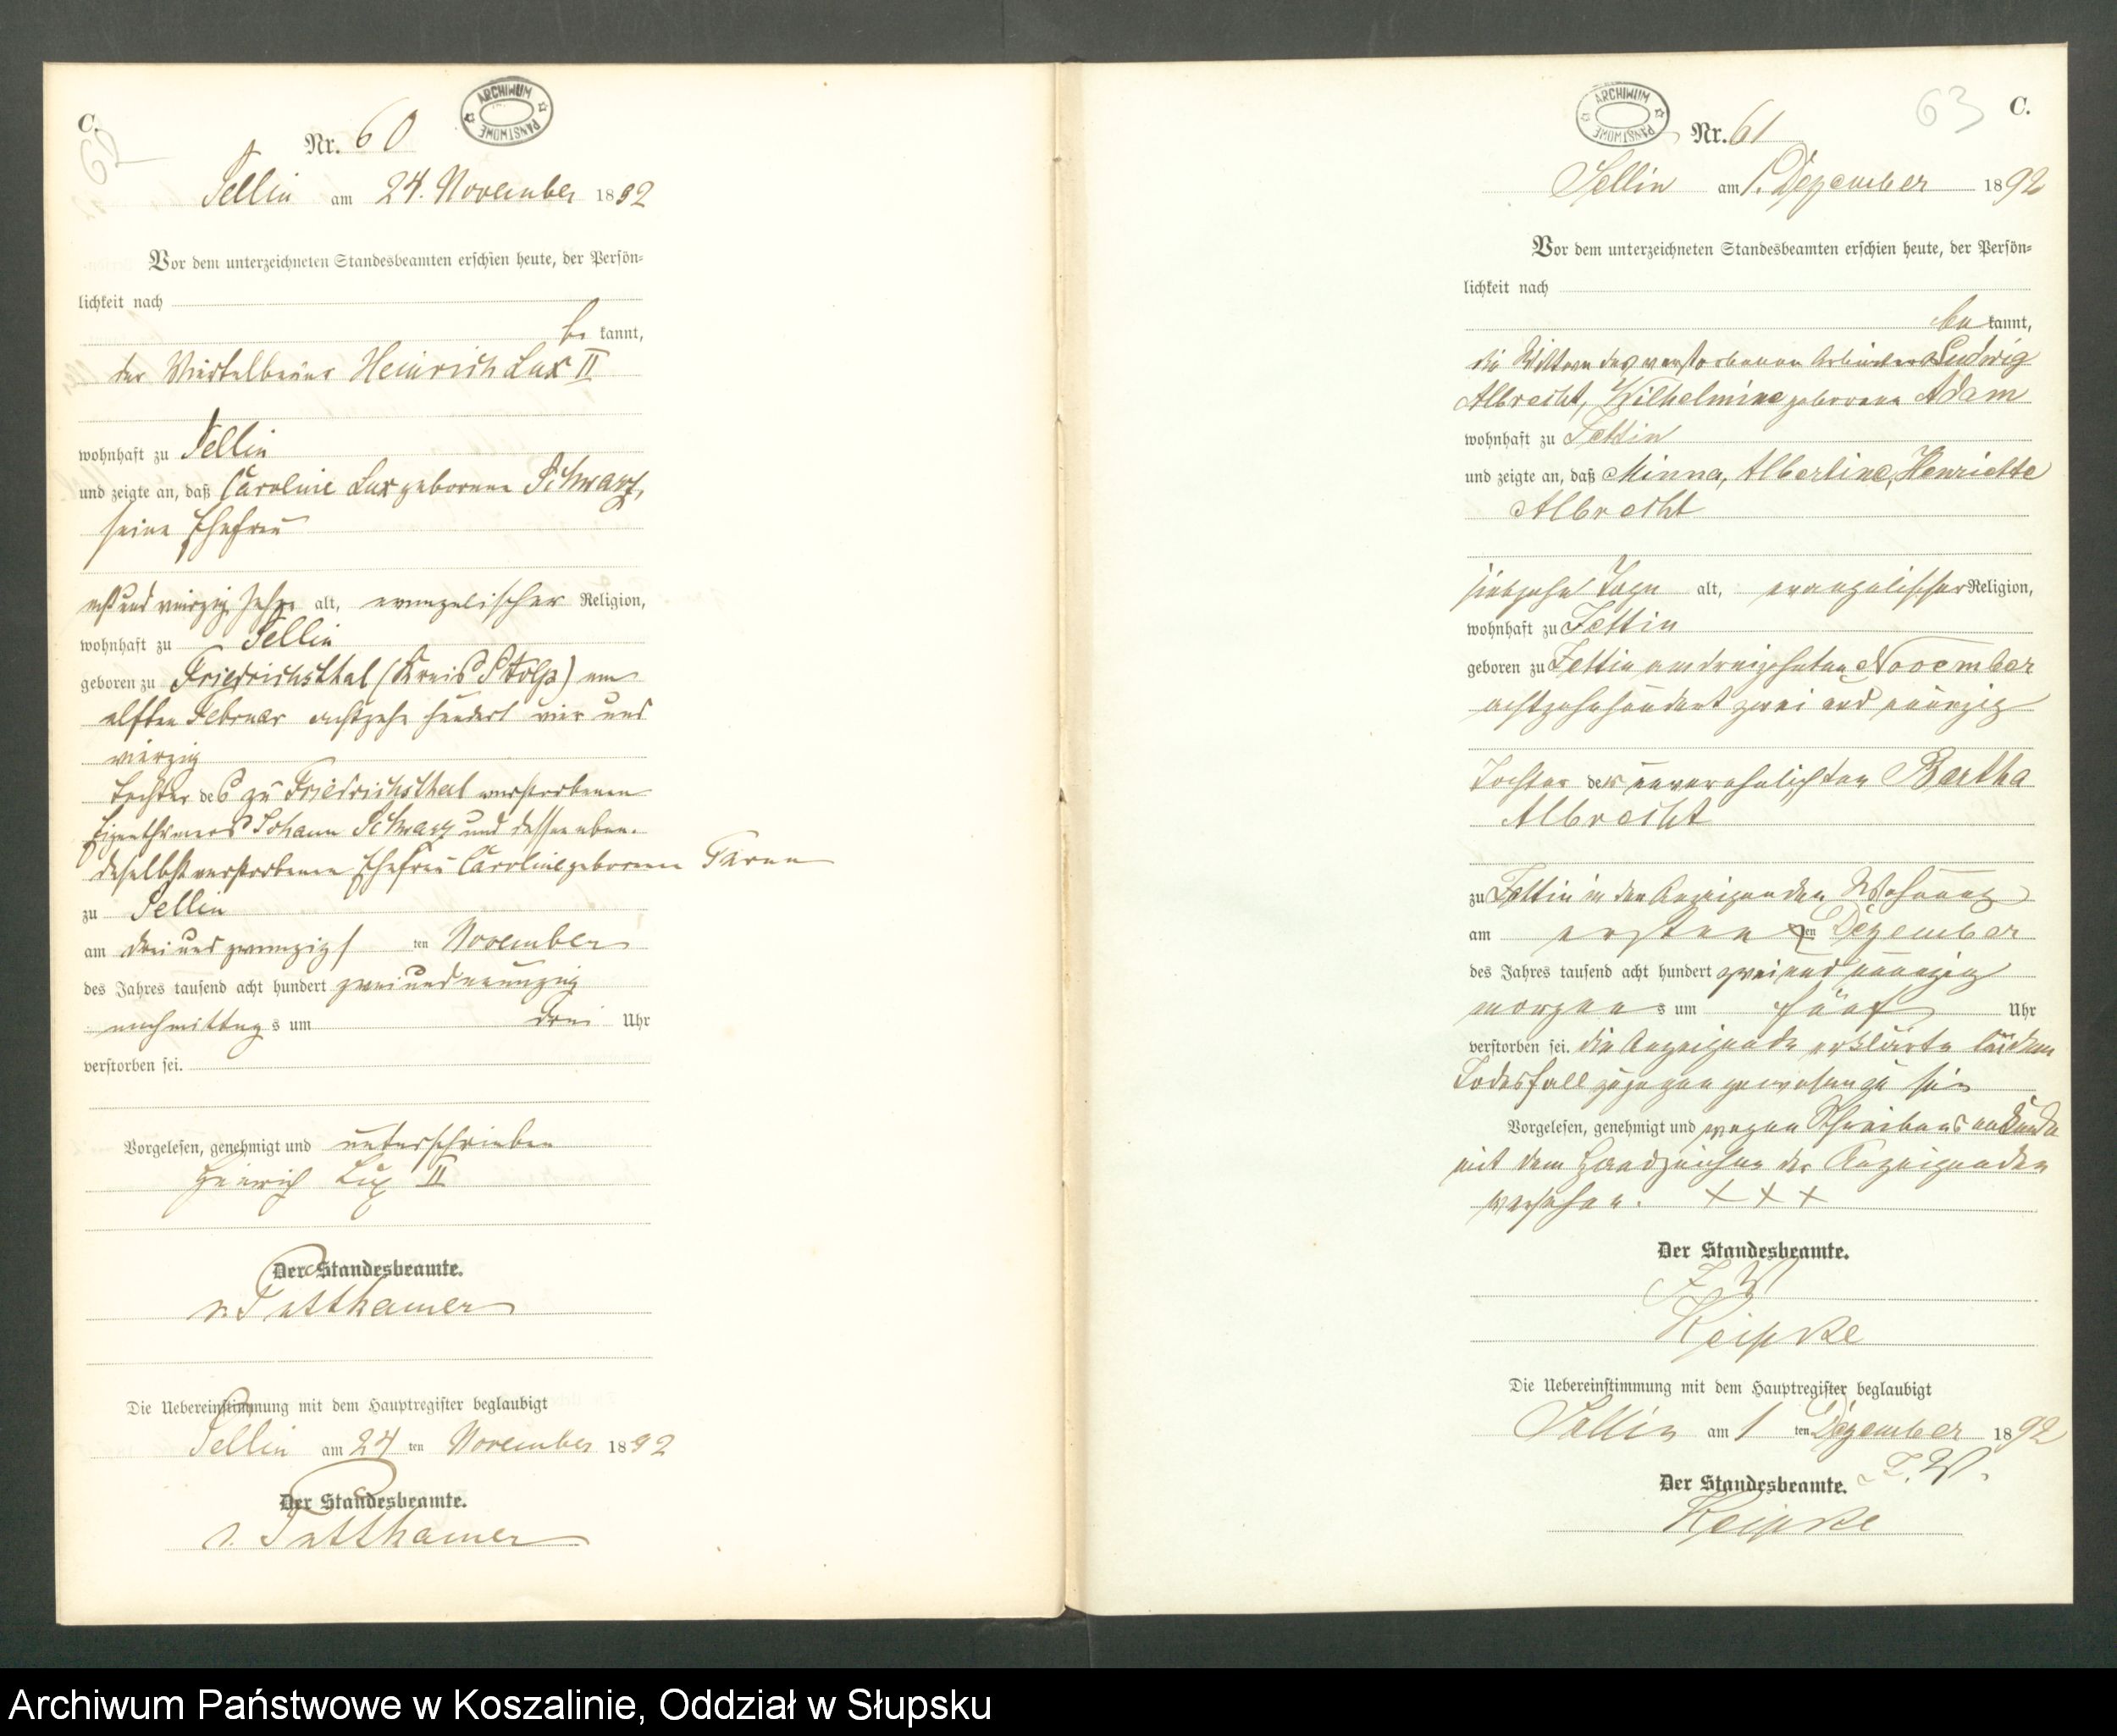 C.
62
ARCHIWUM PAŃSTWOWE
Nr. 60
Sellin am 24. November 1892
Vor dem unterzeichneten Standesbeamten erschien heute, der Persön-
lichkeit nach
be kannt,
der Viertelbauer Heinrich Lux II
wohnhaft zu Sellin
und zeigte an, daß Caroline Lux geborene Schwarz,
seine Ehefrau
acht und vierzig Jahre alt, evangelischer Religion,
wohnhaft zu Sellin
geboren zu Friedrichsthal (Kreis Stolp) am
elften Februar achtzehn hundert vier und
vierzig
Tochter des zu Friedrichsthal verstorbenen
Eigenthümers Johann Schwarz und dessen eben-
daselbst verstorbenen Ehefrau Caroline geborenen
zu Sellin
am drei und zwanzigs ten November
des Jahres tausend acht hundert zwei und neunzig
nachmittag s um drei Uhr
verstorben sei.
Vorgelesen, genehmigt und unterschrieben
Heinrich Lux II
Der Standesbeamte.
v. Puttkamer
Die Uebereinstimmung mit dem Hauptregister beglaubigt
Sellin am 24 ten November 1892
Der Standesbeamte.
v. Puttkamer
C.
63
ARCHIWUM PAŃSTWOWE
Nr. 61
Sellin am 1. Dezember 1892
Vor dem unterzeichneten Standesbeamten erschien heute, der Persön-
lichkeit nach
be kannt,
die Wittwe des verstorbenen Arbeiters Ludwig
Albrecht, Wilhelmine geborene Adam
wohnhaft zu
und zeigte an, daß Minna, Albertine, Henriette
Albrecht
siebzehn Tage alt, evangelischer Religion,
wohnhaft zu
geboren zu am dreizehnten November
achtzehnhundert zwei und neunzig
Tochter der unverehelichten Bertha
Albrecht
zu in der Anzeigenden Wohnung
am ersten ten Dezember
des Jahres tausend acht hundert zwei und neunzig
morgens um fünf Uhr
verstorben sei. die Anzeigende erklärte bei dem
Todesfall zugegen gewesen zu sein
Vorgelesen, genehmigt und wegen Schreibens unkunde
mit dem Handzeichen der Anzeigenden
versehen. + + +
Der Standesbeamte.
I. V.
Die Uebereinstimmung mit dem Hauptregister beglaubigt
Sellin am 1 ten Dezember 1892
Der Standesbeamte. I. V.
Archiwum Państwowe w Koszalinie, Oddział w Słupsku